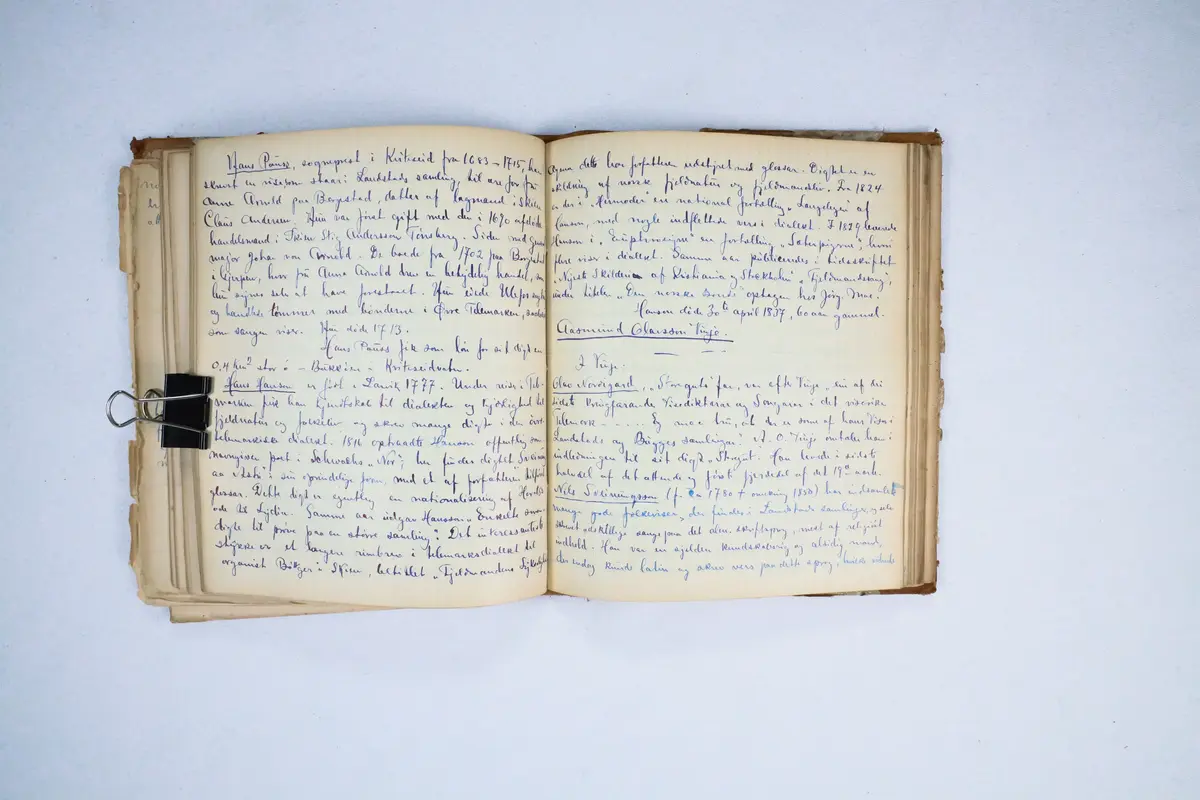 Hans Pauss, sogneprest i Kviteseid fra 1683–1715, har
skrevet en vise som staar i Landstads samling, til ære for frü
Anne Arnold paa Bergstad, datter af lagmand i Skien
Claus Andersen. Hün var først gift med den i 1690 afdöde
handelsmand i Skien Stig Andersson Tonsberg. Siden med general
major Johan von Arnold. De boede fra 1702 paa Borgestad
i Gjerpen, hvor frü Anne Arnold drev en betydelig handel, som
hün synes selv at have forestaaet. Hün eiede Ulefos
og handlet tömmer med bönderne i Øvre Telemarken,
som sangen viser. Hün döde 1713.
Hans Pauss fik som lön for sit digt en
0,4 km² stor ö – Bukköen – Kviteseidvatn.
Hans Hansen er födt i Larvik 1777. Under reiser i Tele-
marken fik han kjendskab til dialekten og kjærlighed til
fjeldnatur og folkeliv og skrev mange digte i den övre
telemarkiske dialekt. 1816 optraadte Hansen offentlig som
navngiven poet i Schwachs „Nor“, her findes digtet
i sin oprindelige form, med et af forfatteren tilföiet
glossar. Dette digt er egentlig en nationalisering af Horats
ode til Lydia. Samme aar udgav Hansen „Enkelte smaa-
digte til pröve paa en större samling“. Det interessanteste
stykke er et langere rimbrev i telemarksdialekt til
organist Bötger i Skien, betitlet „Fjeldmandens
Ogsaa dette har forfatteren udstyret med glossar. Digtet er en
skildring af norsk fjeldnatur og fjeldmandsliv. Da 1824
er der i „Hermoder“ en national fortælling „Langelegen“ af
Hansen, med nogle indflettede vers i dialekt. I 1829 leverede
Hansen i „Euphrosyne“ en fortælling „Sæterpigerne“, hvori
flere viser i dialekt. Samme aar publiceredes i tidsskriftet
„Nyeste Skilderie af Kristiania og Stockholm“ „Fjeldmandssang“,
under titelen „Den norske Bonde“ optagen hos Jörg. Moe.
Hansen döde 30te april 1837, 60 aar gammel.
Aasmund Olavsson Vinje.
I Vinje.
Olav Nordigard, „Storegut“s far, var efter Vinje „ein af dei
sidste kringfarande Visediktarar og Songarar i det viserike
Telemork ..... Eg maa tru, at der er som af hans Visur i
Landstads og Bugges samlingar“. A. O. Vinje omtaler ham i
indledningen til sit digt „Storegut“. Han levede i sidste
halvdel af det attende og förste fjerdedel af det 19de aarh.
Nils Sveinungsson (f. ca 1780 † omkring 1850) har indsamlet
mange gode folkeviser, der findes i Landstads samlinger, og selv
skrevet adskillige sange paa det alm. skriftsprog, mest af religiöst
indhold. Han var en sjelden kundskabsrig og alsidig mand,
der endog kunde latin og skrev vers paa dette sprog,